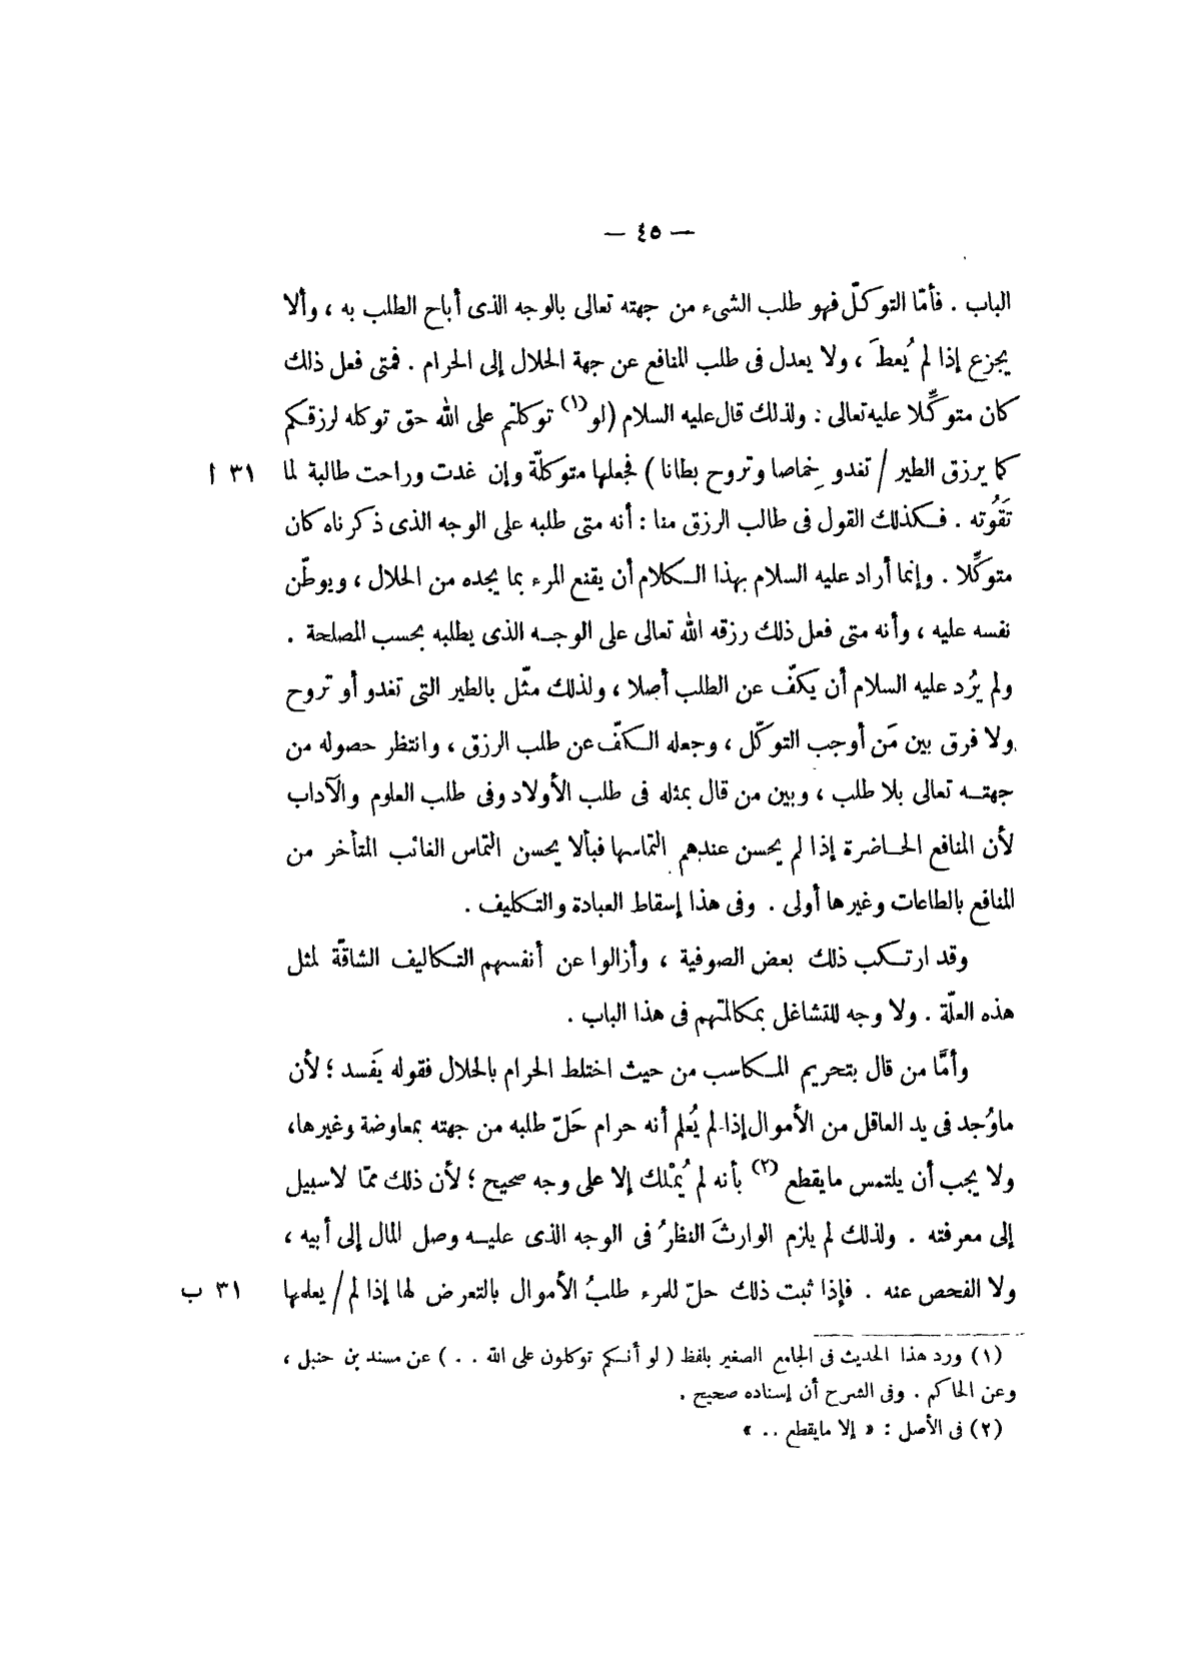 — ٤٥ —
الباب . فأمّا التوكّل فهو طلب الشىء من جهته تعالى بالوجه الذى أباح الطلب به ، وألا
يجزع إذا لم يُعطَ ، ولا يعدل فى طلب المنافع عن جهة الحلال إلى الحرام . فمتى فعل ذلك
كان متوكِّلا عليه تعالى : ولذلك قال عليه السلام (لو(١) توكلتم على الله حق توكله لرزقكم
كما يرزق الطير / تغدو خِماصا وتروح بطانا) فجعلها متوكلّة وإن غدت وراحت طالبة لما ٣١ ا
تَقُوته . فكذلك القول فى طالب الرزق منا : أنه متى طلبه على الوجه الذى ذكرناه كان
متوكِّلا . وإنما أراد عليه السلام بهذا الكلام أن يقنع المرء بما يجده من الحلال ، ويوطّن
نفسه عليه ، وأنه متى فعل ذلك رزقه الله تعالى على الوجه الذى يطلبه بحسب المصلحة .
ولم يُرد عليه السلام أن يَكفّ عن الطلب أصلا ، ولذلك مثّل بالطير التى تغدو أو تروح
ولا فرق بين مَن أوجب التوكّل ، وجعله الكفّ عن طلب الرزق ، وانتظر حصوله من
جهته تعالى بلا طلب ، وبين من قال بمثله فى طلب الأولاد وفى طلب العلوم والآداب
لأن المنافع الحاضرة إذا لم يحسن عندهم التماسها فبألا يحسن التماس الغائب المتأخر من
المنافع بالطاعات وغيرها أولى . وفى هذا إسقاط العبادة والتكليف .
وقد ارتكب ذلك بعض الصوفية ، وأزالوا عن أنفسهم التكاليف الشاقّة لمثل
هذه العلّة . ولا وجه للتشاغل بمكالمتهم فى هذا الباب .
وأمَّا من قال بتحريم المكاسب من حيث اختلط الحرام بالحلال فقوله يَفسد ؛ لأن
ماوُجد فى يد العاقل من الأموال إذا لم يُعلم أنه حرام حَلّ طلبه من جهته بمعاوضة وغيرها،
ولا يجب أن يلتمس مايقطع (٢) بأنه لم يُمْلك إلا على وجه صحيح ؛ لأن ذلك ممّا لاسبيل
إلى معرفته . ولذلك لم يلزم الوارثَ النظرُ فى الوجه الذى عليه وصل المال إلى أبيه ،
ولا الفحص عنه . فإذا ثبت ذلك حلّ للمرء طلبُ الأموال بالتعرض لها إذا لم / يعلمها ٣١ ب
(١) ورد هذا الحديث فى الجامع الصغير بلفظ ( لو أنكم توكلون على الله . . ) عن مسند بن حنبل ،
وعن الحاكم . وفى الشرح أن إسناده صحيح .
(٢) فى الأصل : « إلا مايقطع .. »